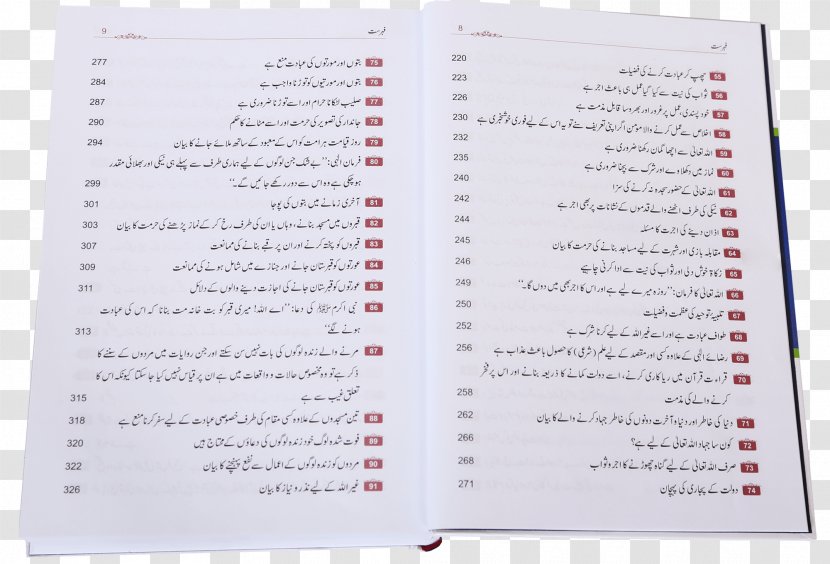 8 فہرست
55 چھپ کر عبادت کرنے کی فضیلت 220
56 ثواب کی نیت سے کیا گیا عمل ہی باعث اجر ہے 223
57 خود پسندی، عمل پر غرور اور بھروسا قابل مذمت ہے 226
58 اخلاص سے عمل کرنے والا مؤمن اگر اپنی تعریف سنے تو یہ اس کے لیے فوری خوشخبری ہے 230
59 اللہ تعالیٰ سے اچھا گمان رکھنا ضروری ہے 232
60 نماز میں دکھلاوے اور شرک سے بچنا ضروری ہے 235
61 اللہ تعالیٰ کے حضور سجدہ نہ کرنے کی سزا 240
62 نیکی کی طرف اٹھنے والے قدموں کے نشانات پر بھی اجر ہے 242
63 اذان دینے کی اجرت کا مسئلہ 244
64 مقابلہ بازی اور شہرت کے لیے مساجد بنانے کی حرمت کا بیان 245
65 زکاۃ خوش دلی اور ثواب کی نیت سے ادا کرنی چاہیے 246
66 اللہ تعالیٰ کا فرمان: ’’روزہ میرے لیے ہے اور اس کا اجر بھی میں دوں گا۔‘‘ 249
67 تلبیۂ توحید کی عظمت و فضیلت 250
68 طواف عبادت ہے اور اسے غیر اللہ کے لیے کرنا شرک ہے 252
69 رضائے الٰہی کے علاوہ کسی اور مقصد کے لیے علم (شرعی) کا حصول باعث عذاب ہے 256
70 قراءت قرآن میں ریاکاری کرنے، اسے دولت کمانے کا ذریعہ بنانے اور اس پر فخر
کرنے والے کی مذمت 258
71 دنیا کی خاطر اور دنیا و آخرت دونوں کی خاطر جہاد کرنے والے کا بیان 262
72 کون سا جہاد اللہ تعالیٰ کے لیے ہے؟ 266
73 صرف اللہ تعالیٰ کے لیے گناہ چھوڑنے کا اجر و ثواب 268
74 دولت کے پجاری کی پہچان 271
فہرست 9
75 بتوں اور مورتوں کی عبادت منع ہے 277
76 بتوں اور مورتیوں کو توڑنا واجب ہے 284
77 صلیب لٹکانا حرام اور اسے توڑنا ضروری ہے 287
78 جاندار کی تصویر کی حرمت اور اسے مٹانے کا حکم 290
79 روز قیامت ہر امت کو اس کے معبود کے ساتھ ملائے جانے کا بیان 294
80 فرمان الٰہی: ’’بے شک جن لوگوں کے لیے ہماری طرف سے پہلے ہی نیکی اور بھلائی مقدر
ہو چکی ہے وہ اس سے دور رکھے جائیں گے۔‘‘ 299
81 آخری زمانے میں بتوں کی پوجا 301
82 قبروں میں مسجد بنانے، وہاں یا ان کی طرف رخ کر کے نماز پڑھنے کی حرمت کا بیان 303
83 قبروں کو پختہ کرنے اور ان پر قبے بنانے کی ممانعت 307
84 عورتوں کو قبرستان جانے اور جنازے میں شامل ہونے کی ممانعت 309
85 عورتوں کو قبرستان جانے کی اجازت دینے والوں کے دلائل 311
86 نبی اکرم ﷺ کی دعا: ’’اے اللہ! میری قبر کو بت خانہ مت بنانا کہ اس کی عبادت
ہونے لگے‘‘ 313
87 مرنے والے زندہ لوگوں کی بات نہیں سن سکتے اور جن روایات میں مردوں کے سننے کا
ذکر ہے تو وہ مخصوص حالات و واقعات میں ہے ان پر قیاس نہیں کیا جا سکتا کیونکہ اس کا
تعلق غیب سے ہے 315
88 تین مسجدوں کے علاوہ کسی مقام کی طرف خصوصی عبادت کے لیے سفر کرنا منع ہے 318
89 فوت شدہ لوگ خود زندہ لوگوں کی دعاؤں کے محتاج ہیں 320
90 مردوں کو زندہ لوگوں کے اعمال سے نفع پہنچنے کا بیان 322
91 غیر اللہ کے لیے نذر و نیاز کا بیان 326